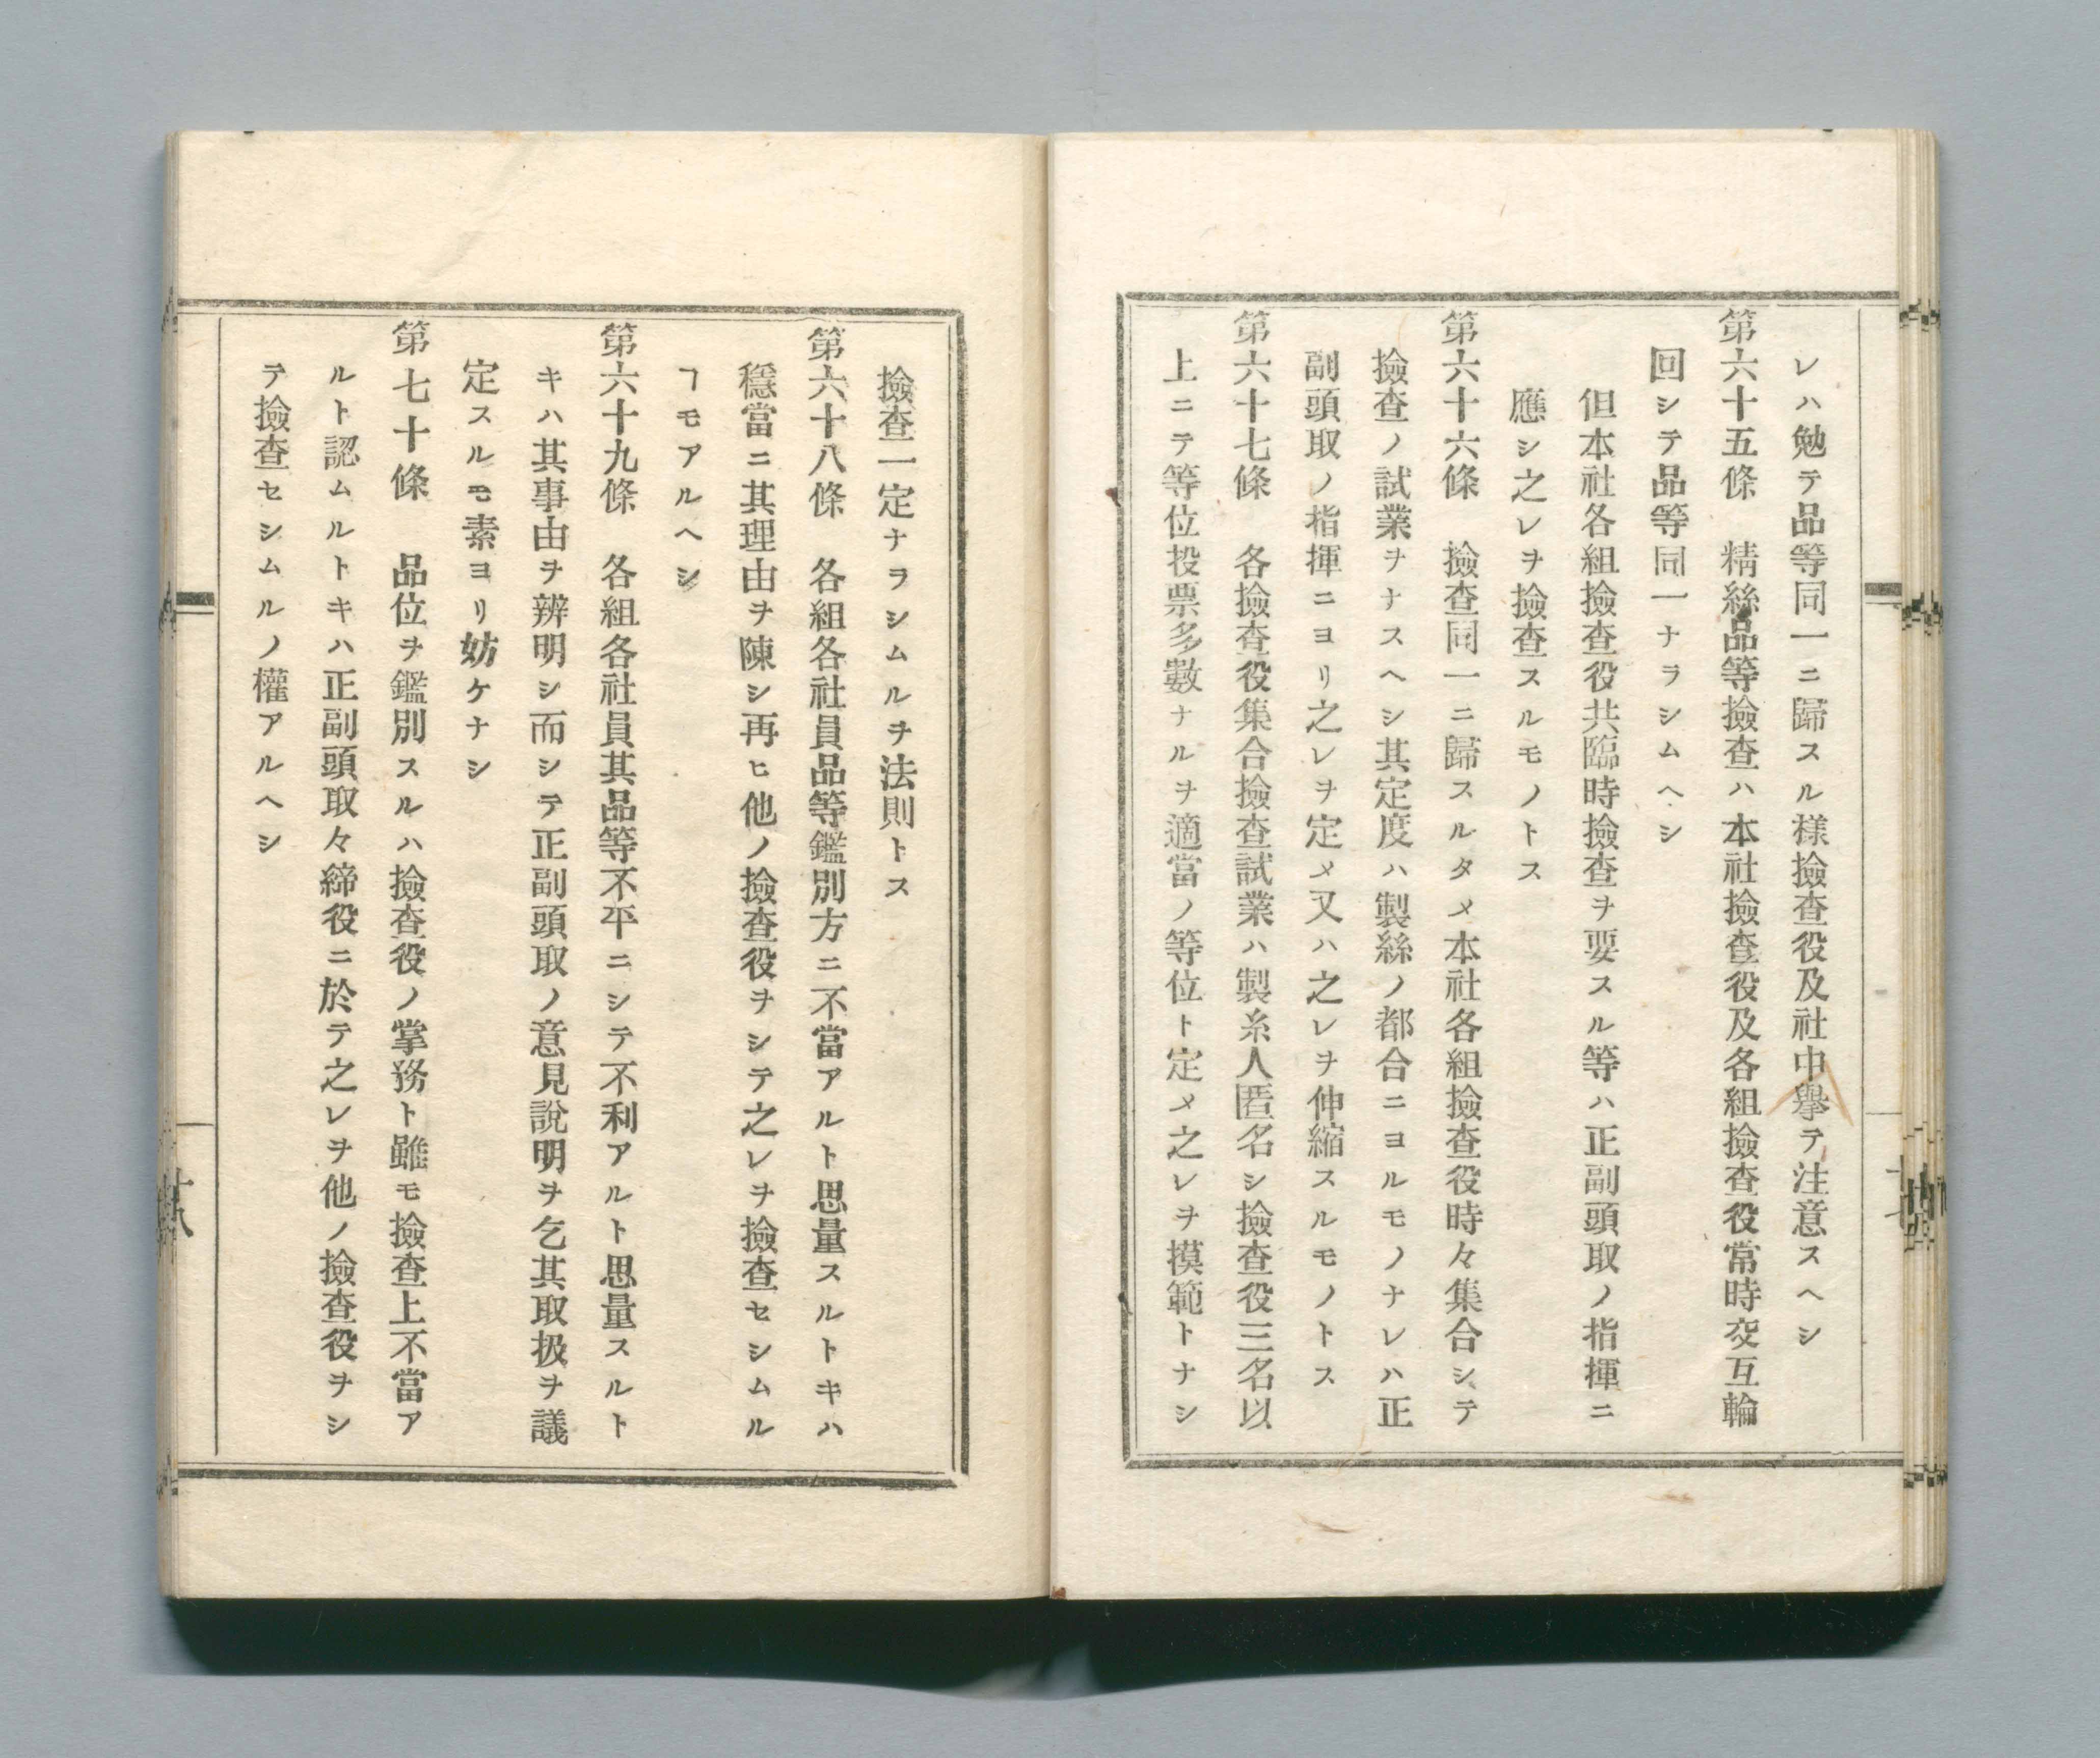 レハ勉テ品等同一ニ歸スル樣撿查役及社中擧テ注意スヘシ
第六十五條　精絲品等撿查ハ本社撿查役及各組撿查役常時交互輪
回シテ品等同一ナラシムヘシ
但本社各組撿查役共臨時撿查ヲ要スル等ハ正副頭取ノ指揮ニ
應シ之レヲ撿查スルモノトス
第六十六條　撿查同一ニ歸スルタメ本社各組撿查役時々集合シテ
撿查ノ試業ヲナスヘシ其定度ハ製絲ノ都合ニヨルモノナレハ正
副頭取ノ指揮ニヨリ之レヲ定メ又ハ之レヲ伸縮スルモノトス
第六十七條　各撿查役集合撿查試業ハ製糸人匿名シ撿查役三名以
上ニテ等位投票多數ナルヲ適當ノ等位ト定メ之レヲ摸範トナシ
撿查一定ナラシムルヲ法則トス
第六十八條　各組各社員品等鑑別方ニ不當アルト思量スルトキハ
穩當ニ其理由ヲ陳シ再ヒ他ノ撿查役ヲシテ之レヲ撿查セシムル
ヿモアルヘシ
第六十九條　各組各社員其品等不平ニシテ不利アルト思量スルト
キハ其事由ヲ辨明シ而シテ正副頭取ノ意見說明ヲ乞其取扱ヲ議
定スルモ素ヨリ妨ケナシ
第七十條　品位ヲ鑑別スルハ撿查役ノ掌務ト雖モ撿查上不當ア
ルト認ムルトキハ正副頭取々締役ニ於テ之レヲ他ノ撿查役ヲシ
テ撿查セシムルノ權アルヘシ